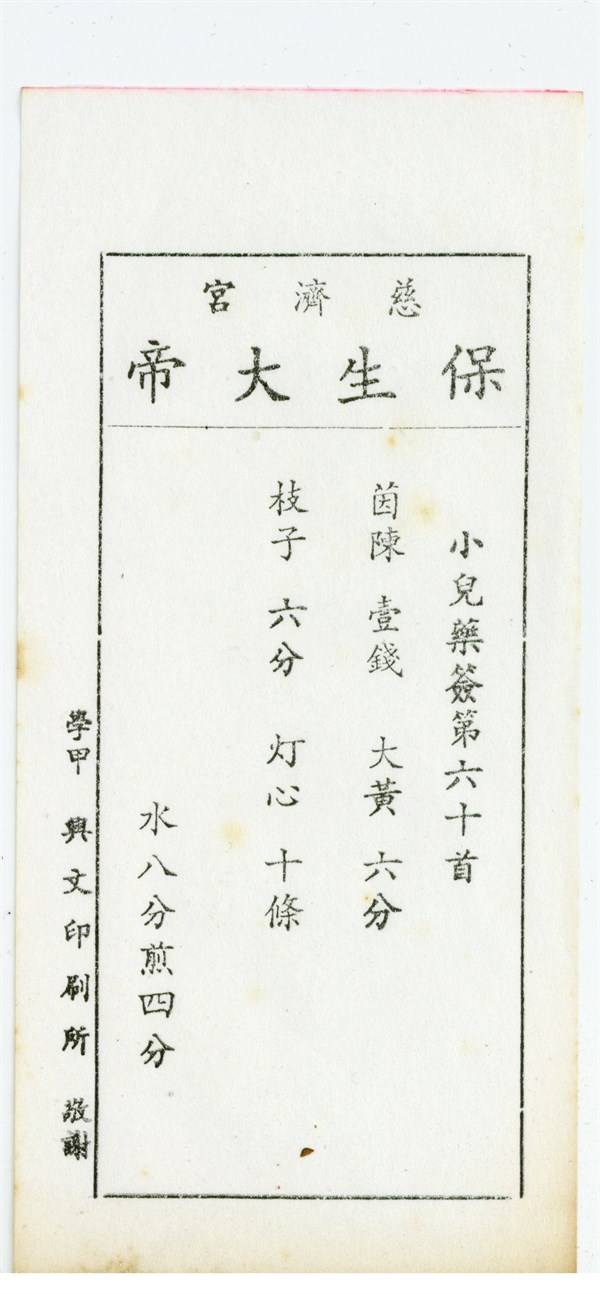 慈濟宮
保生大帝
小兒藥簽第六十首
茵陳 壹錢 大黃 六分
枝子 六分 灯心 十條
水八分煎四分
學甲 興文印刷所 敬謝